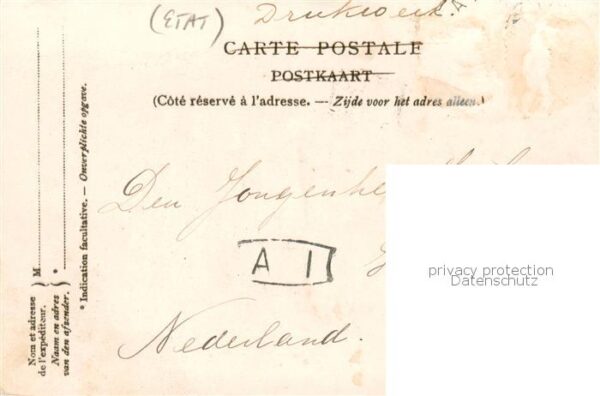 (ETAT) Drukwerk.
CARTE POSTALE
POSTKAART
(Côté réservé à l'adresse. — Zijde voor het adres alleen.)
Den
A I
Nederland.
privacy protection
Datenschutz
* Indication facultative. — Onverplichte opgave.
M
*
Nom et adresse
de l'expéditeur.
Naam en adres
van den afzender.